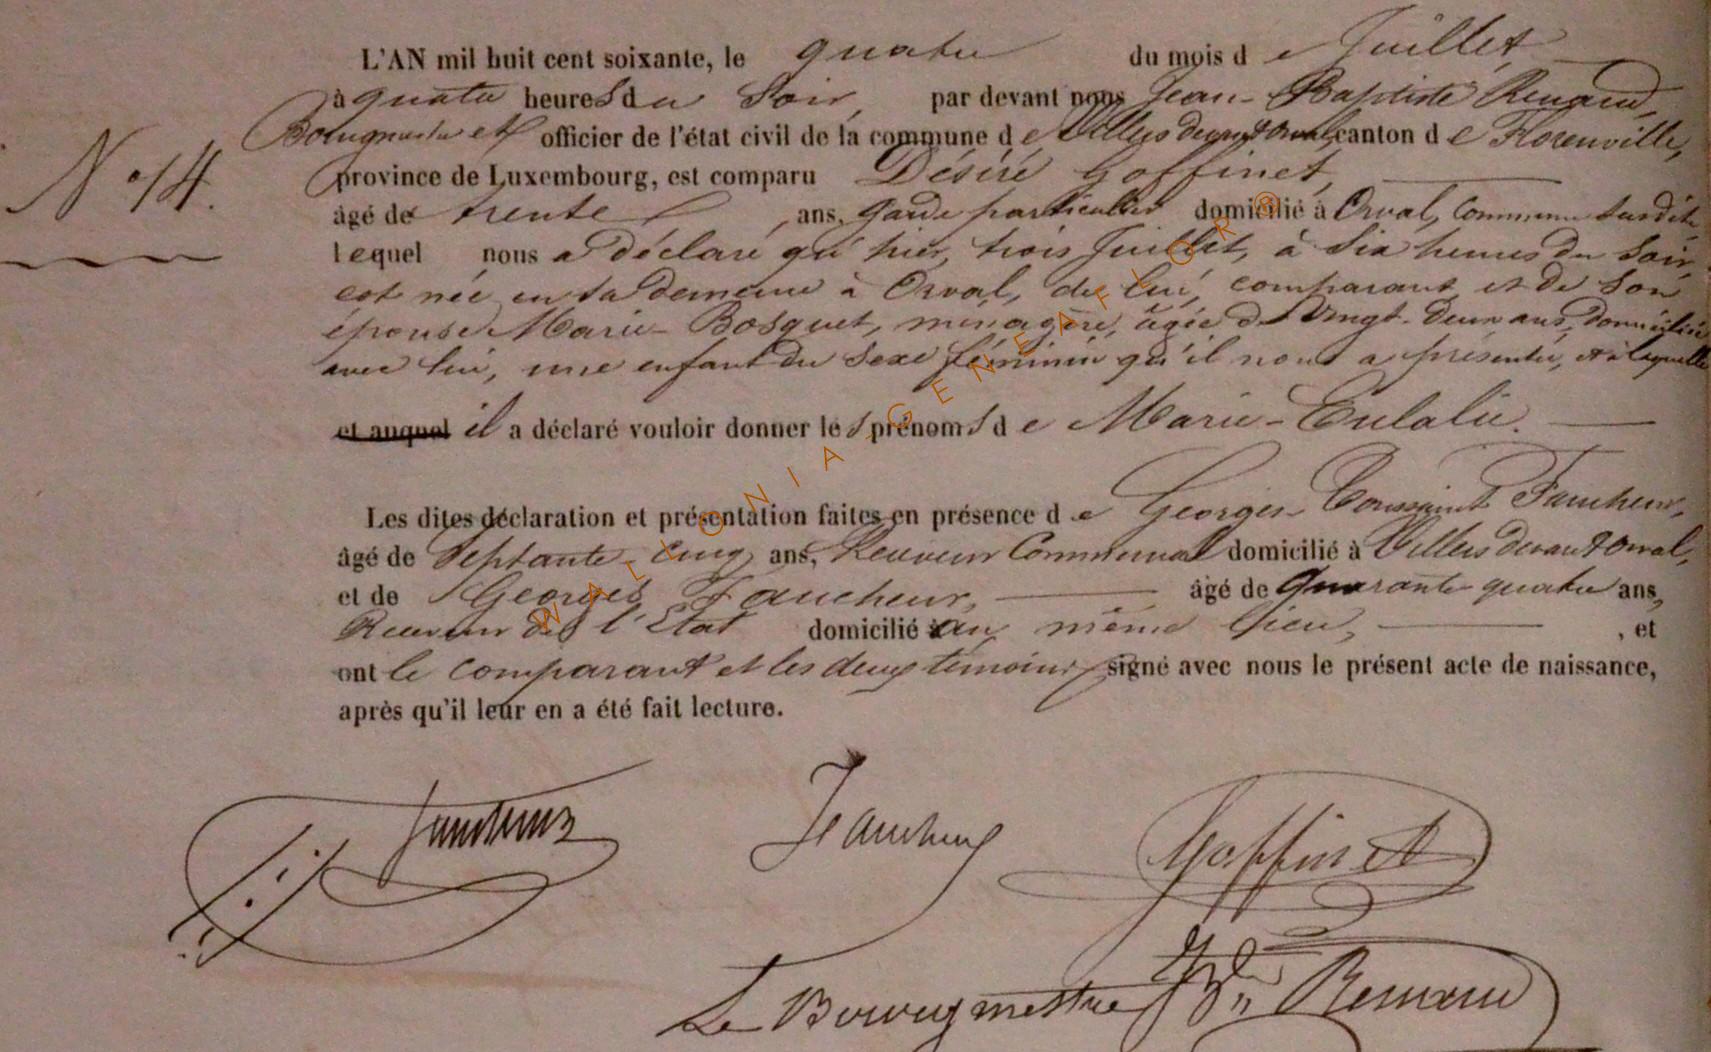 L'AN mil huit cent soixante, le quatre du mois de Juillet
à quatre heures du Soir, par devant nous Jean-Baptiste Renaud,
Bourgmestre et officier de l'état civil de la commune de Villers devant Orval canton de Florenville,
province de Luxembourg, est comparu Désiré Goffinet,
âgé de trente ans, Garde particulier domicilié à Orval, Commune susdite
lequel nous a déclaré qu'hier, trois Juillet, à Six heures du Soir,
est née en sa demeure à Orval, de lui, comparant et de Son
épouse Marie-Bosquet, ménagère, âgée de Vingt-Deux ans, Domiciliée
avec lui, une enfant du Sexe féminin qu'il nous a présentée, et à laquelle
et auquel il a déclaré vouloir donner les prénoms de Marie-Eulalie.
N° 14.
Les dites déclaration et présentation faites en présence de Georges-Toussaint Faucheur,
âgé de Septante cinq ans, Receveur Communal domicilié à Villers devant Orval,
et de Georges Faucheur, âgé de Quarante quatre ans,
Receveur de l'Etat domicilié au même lieu, , et
ont le comparant et les deux témoins signé avec nous le présent acte de naissance,
après qu'il leur en a été fait lecture.
Faucheur Faucheur Goffinet
Le Bourgmestre JBte Renaud
WALLONIA GENEAFLOR ®